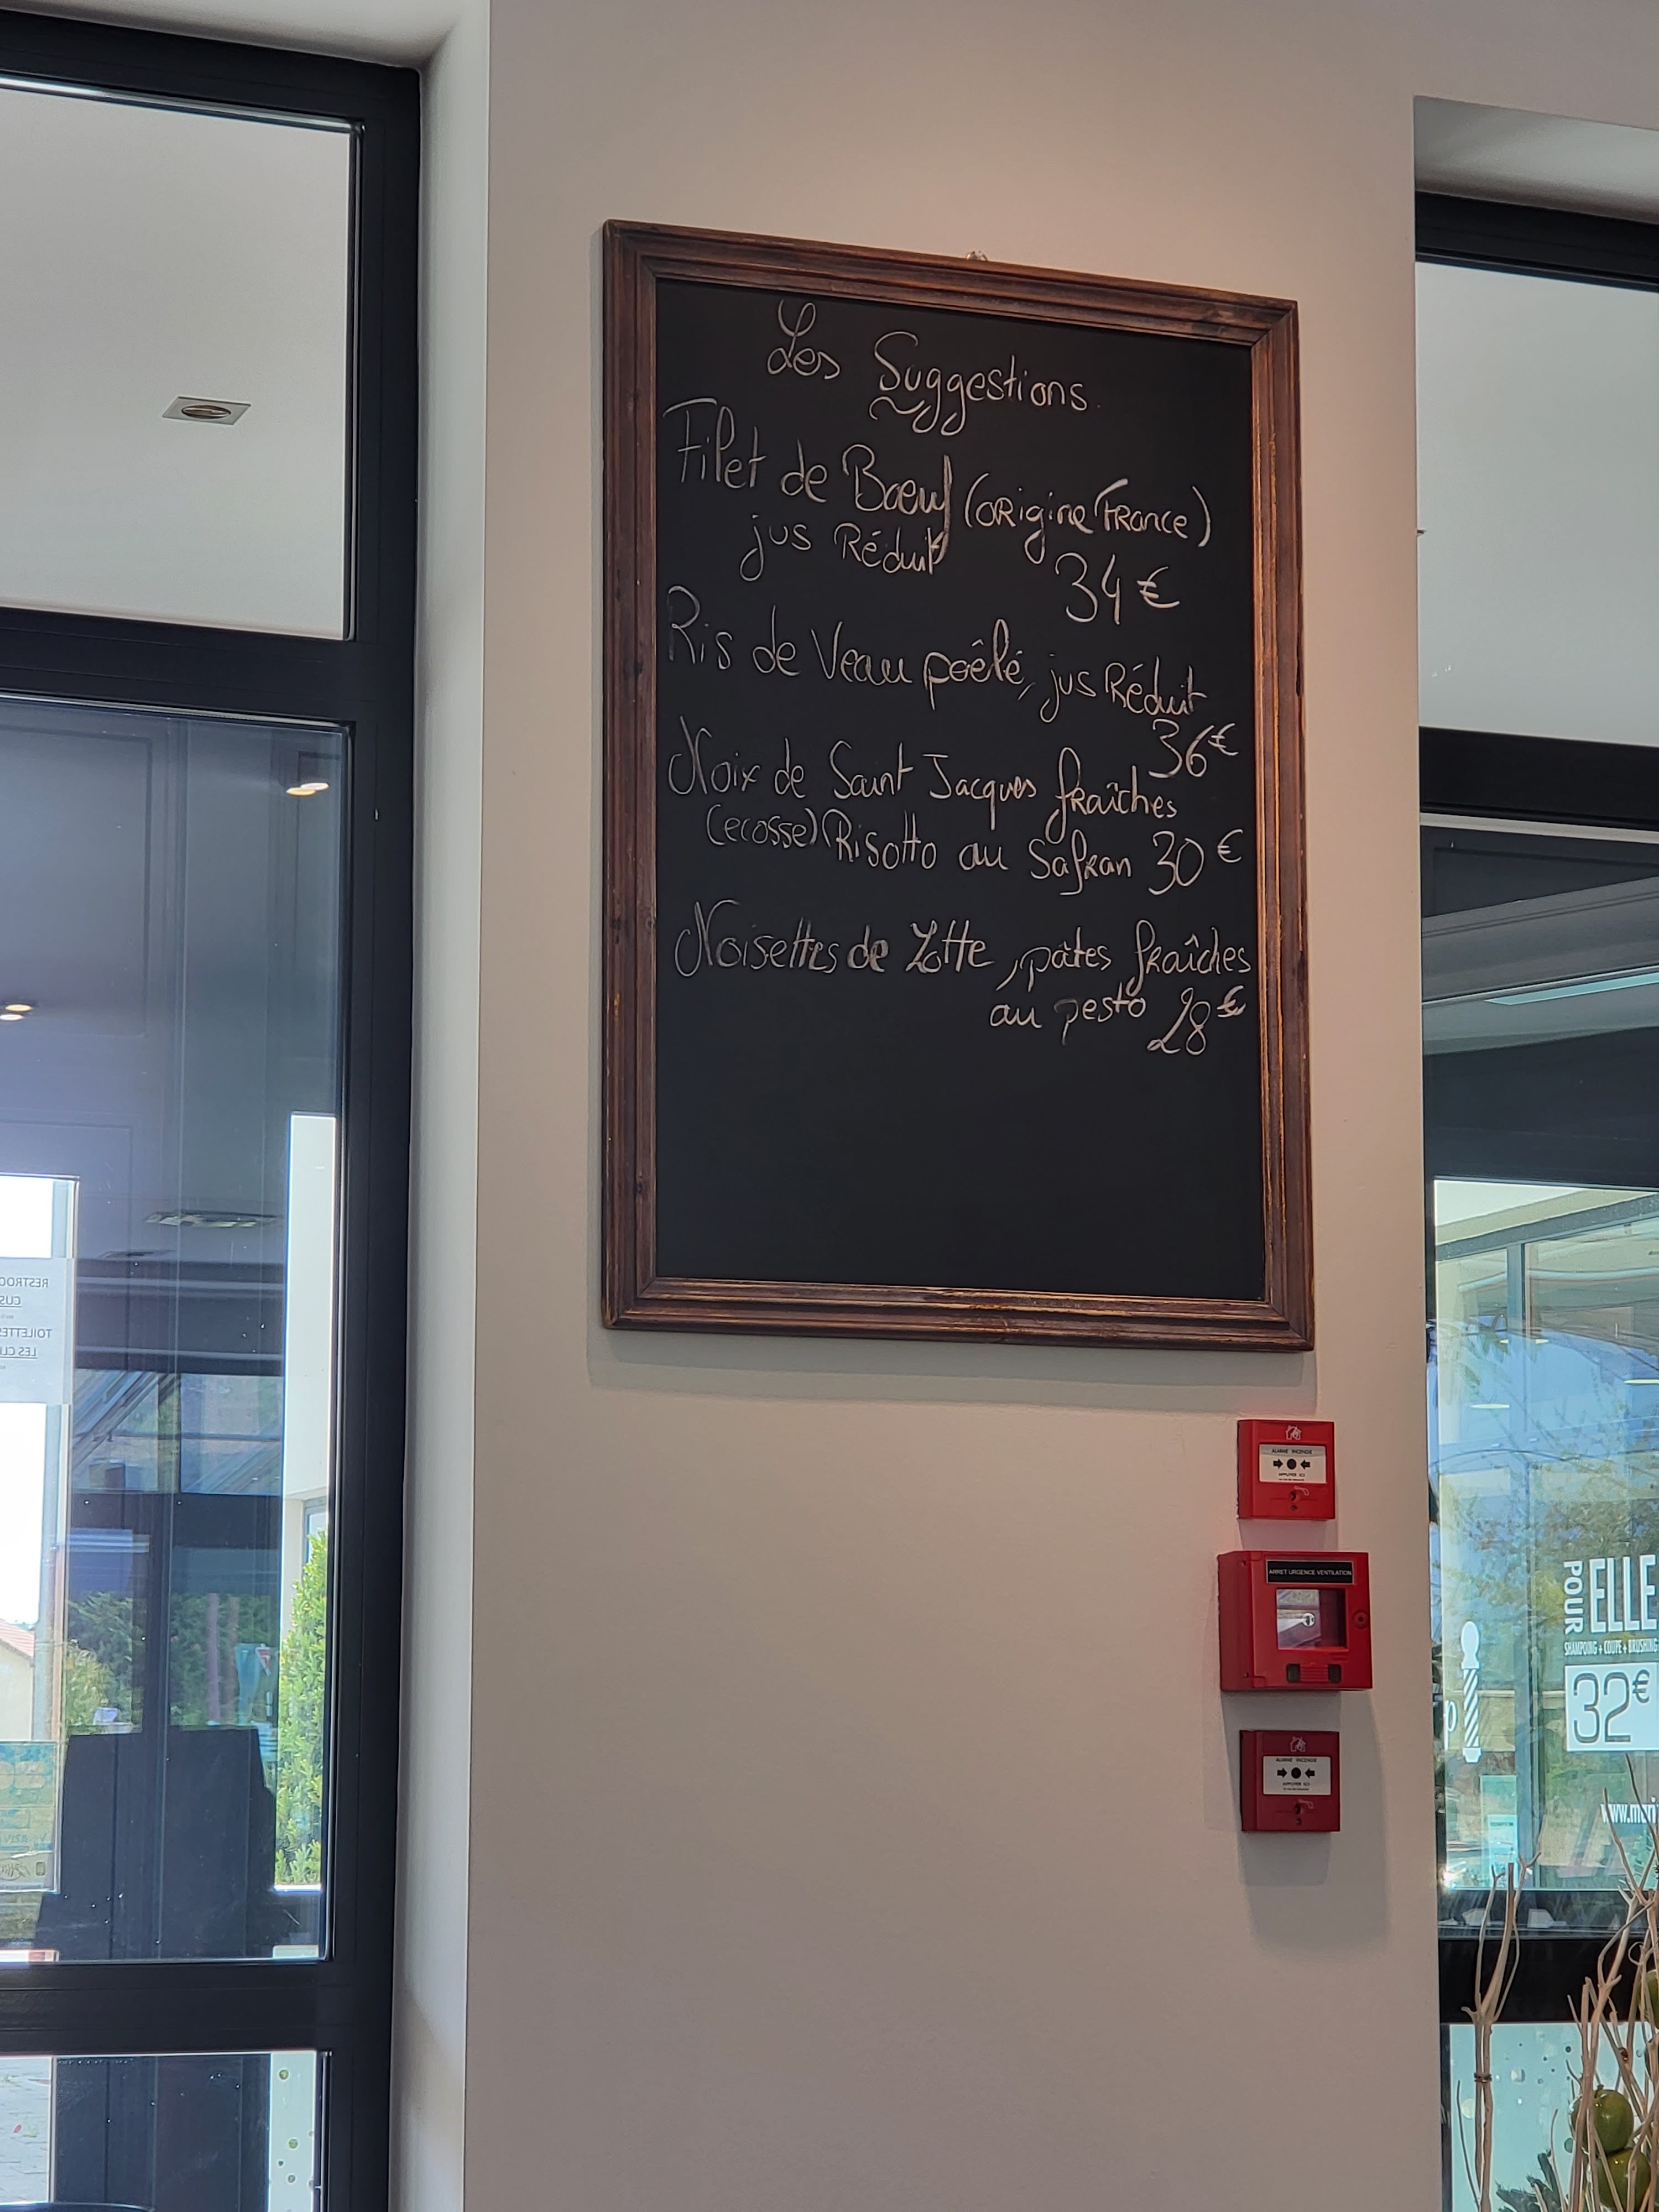 Les Suggestions
Filet de Bœuf (origine France)
jus Réduit
34€
Ris de Veau poêlé, jus Réduit
36€
Noix de Saint Jacques fraîches
(ecosse) Risotto au Safran 30€
Noisettes de Lotte, pâtes fraîches
au pesto 28€
ALARME INCENDIE
APPUYER ICI
ARRET URGENCE VENTILATION
ALARME INCENDIE
APPUYER ICI
POUR ELLE
SHAMPOING + COUPE + BRUSHING
32€
RESTROO
CUS
TOILETTES
LES CL